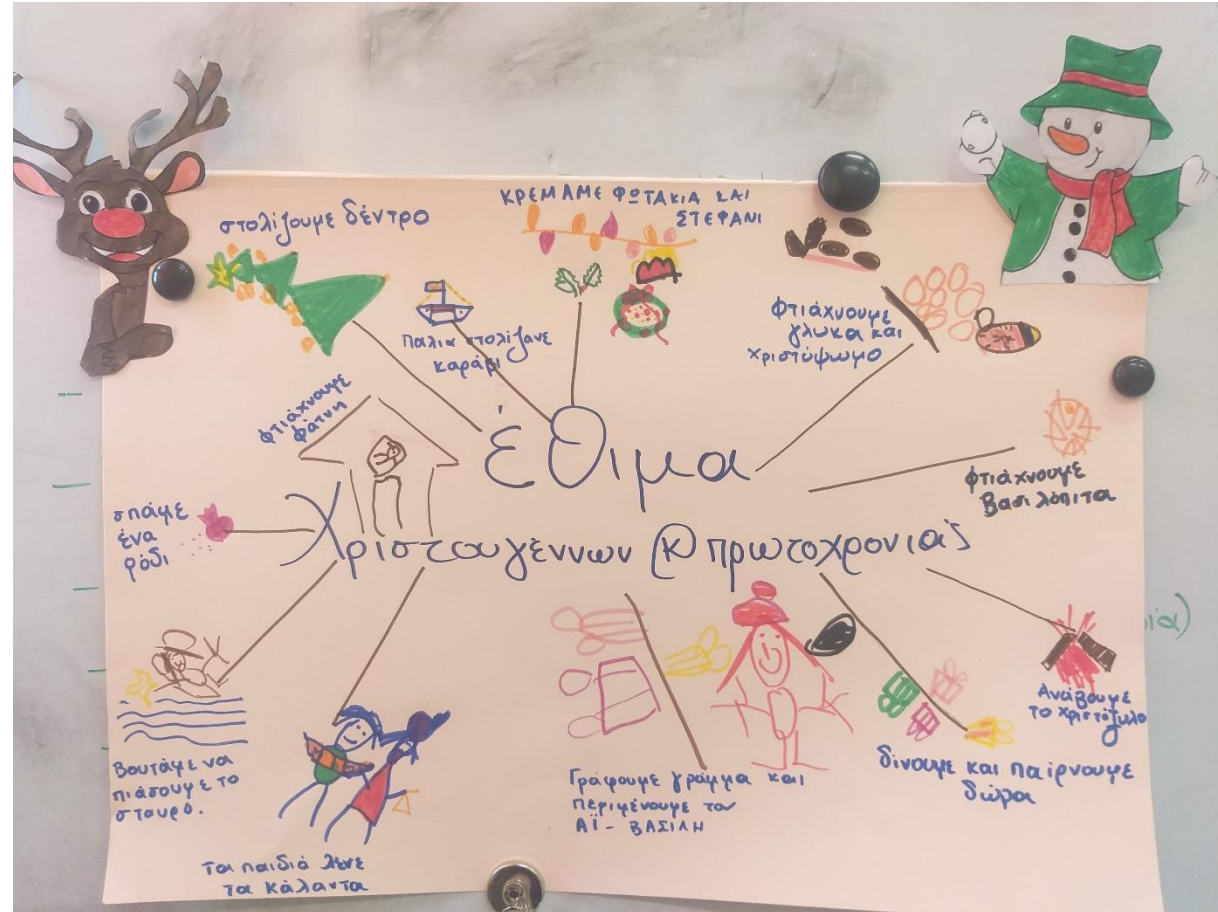 στολίζουμε δέντρο
ΚΡΕΜΑΜΕ ΦΩΤΑΚΙΑ ΚΑΙ
ΣΤΕΦΑΝΙ
Παλιά στολίζανε
καράβι
φτιάχνουμε
γλυκά και
χριστόψωμο
φτιάχνουμε
φάτνη
έθιμα
Χριστουγέννων (κ) πρωτοχρονιάς
φτιάχνουμε
Βασιλόπιτα
σπάμε
ένα
ρόδι
Βουτάμε να
πιάσουμε το
σταυρό.
Τα παιδιά λένε
τα κάλαντα
Γράφουμε γράμμα και
περιμένουμε τον
ΑΪ-ΒΑΣΙΛΗ
δίνουμε και παίρνουμε
δώρα
Ανάβουμε
το χριστόξυλο